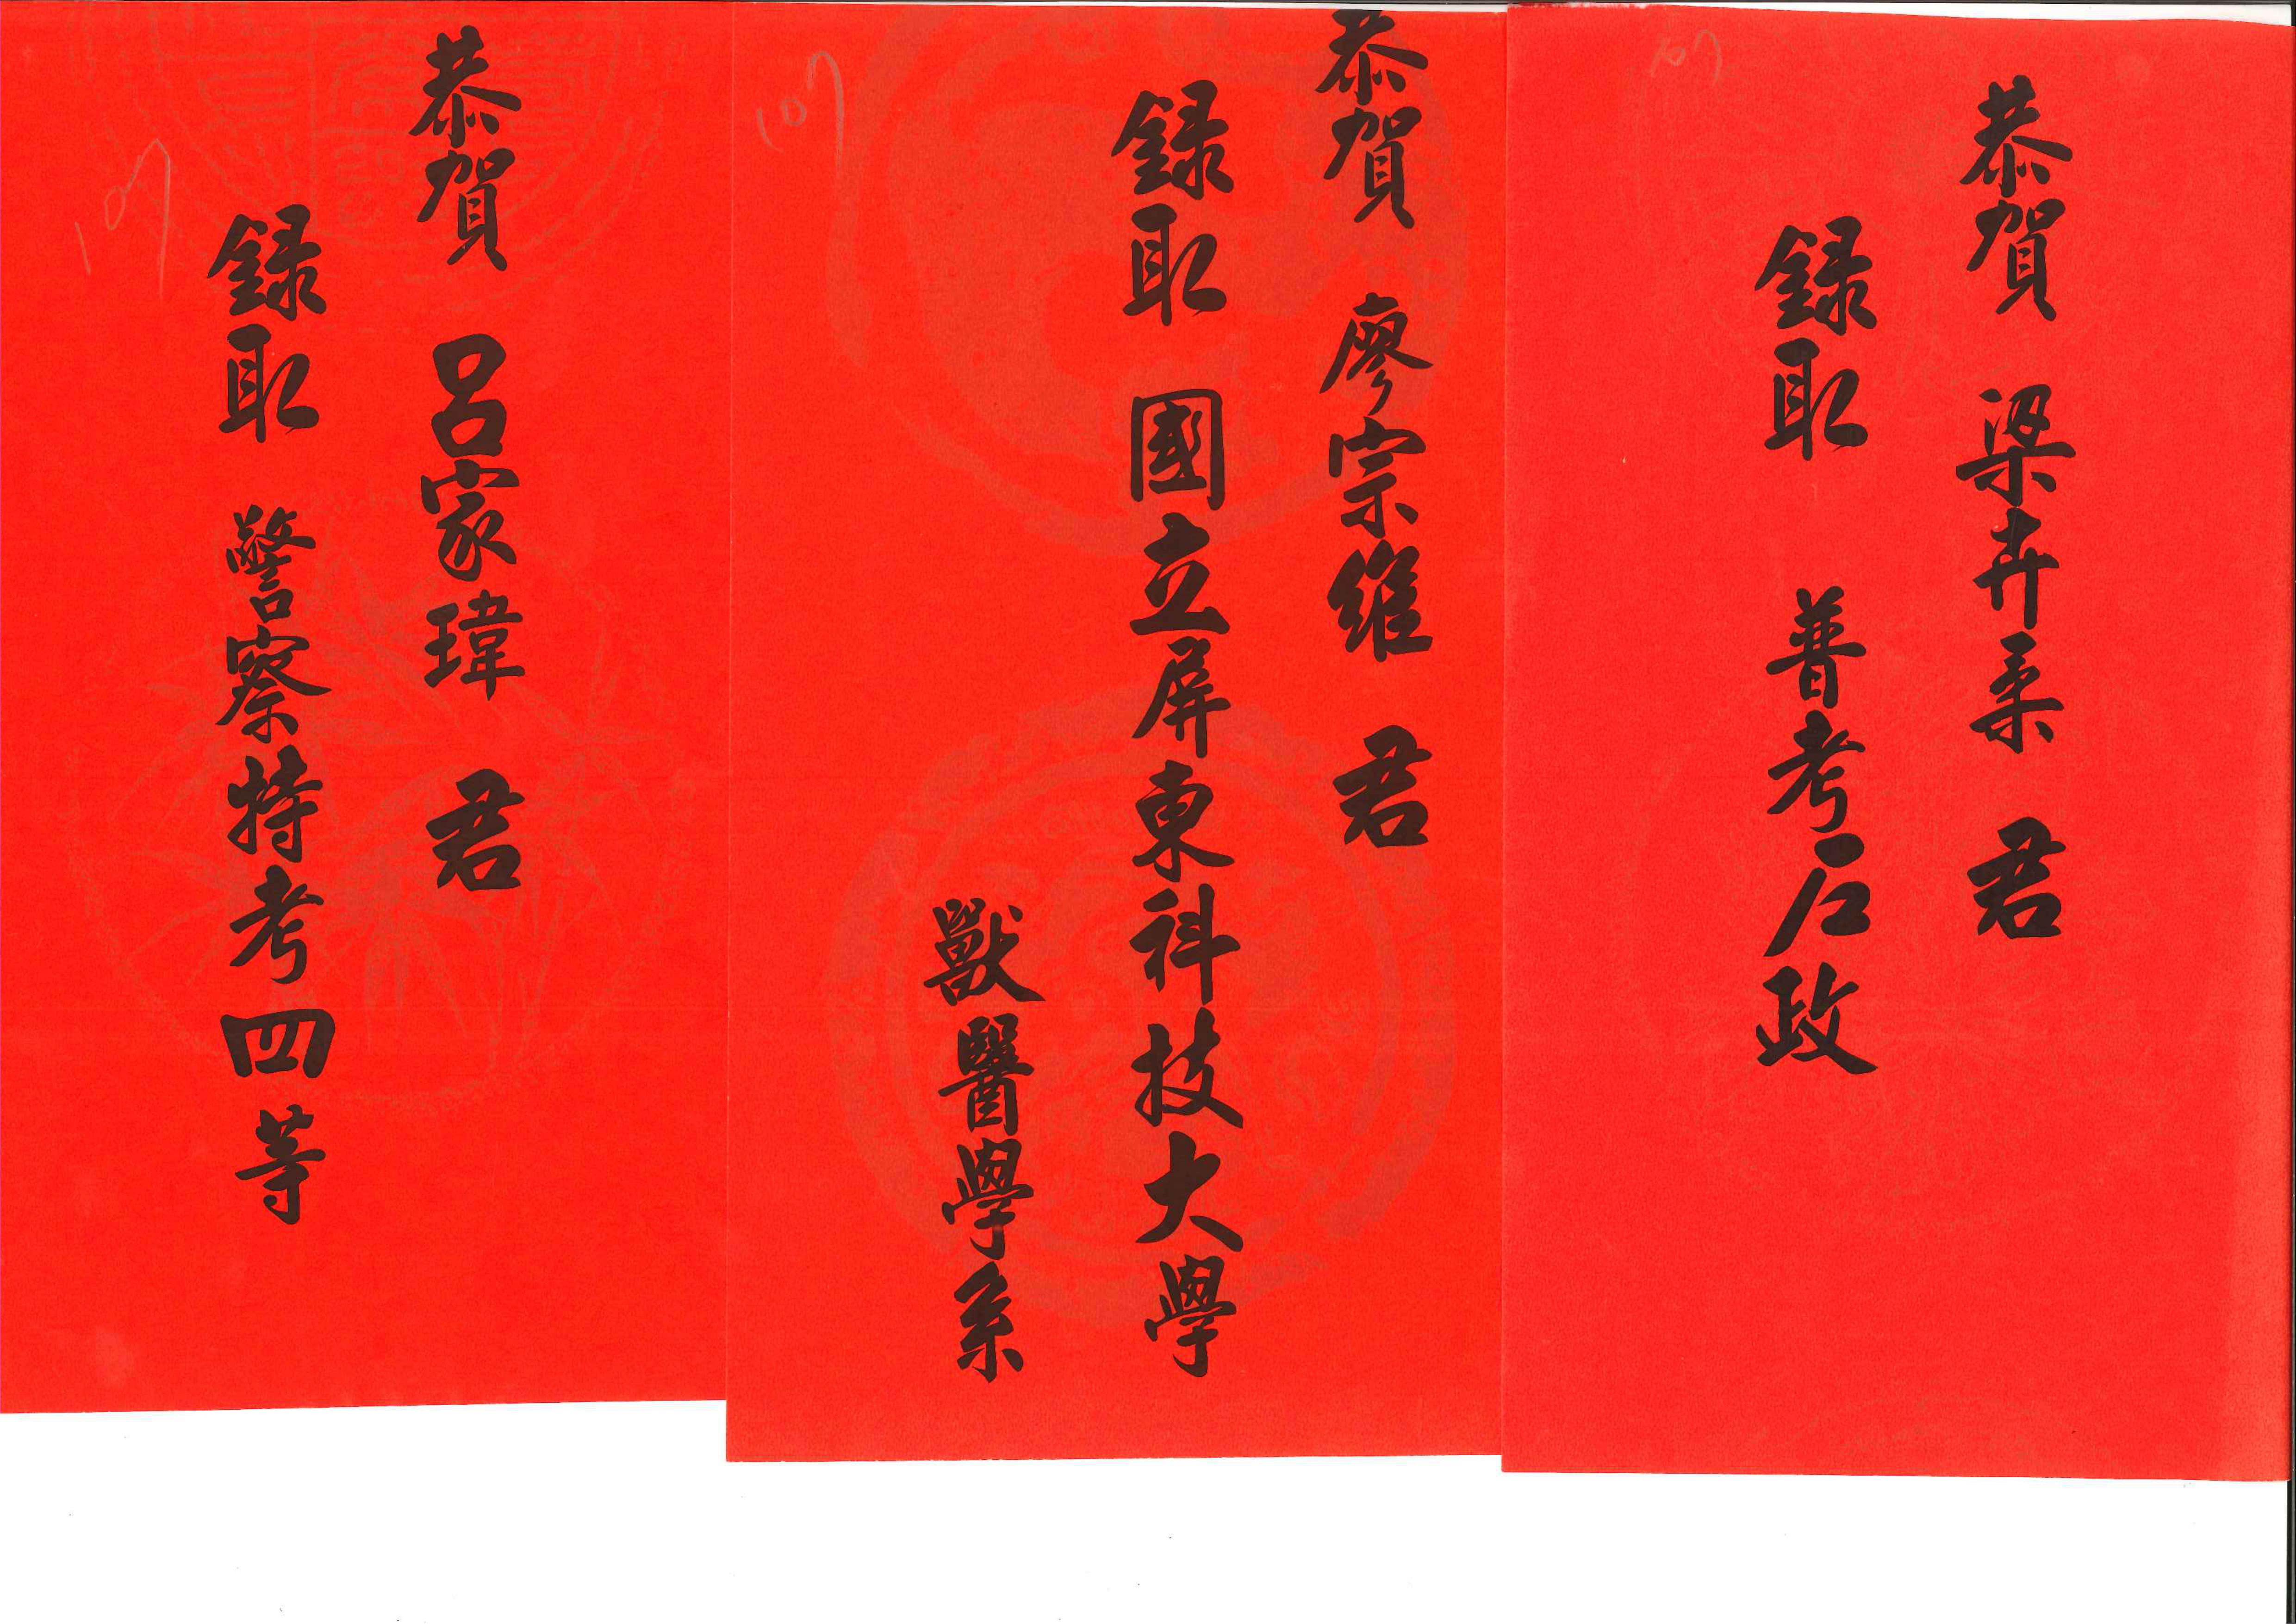 恭賀 梁卉柔 君
錄取 普考戶政
107
恭賀 廖宗維 君
錄取 國立屏東科技大學
獸醫學系
107
恭賀 呂家瑋 君
錄取 警察特考四等
107